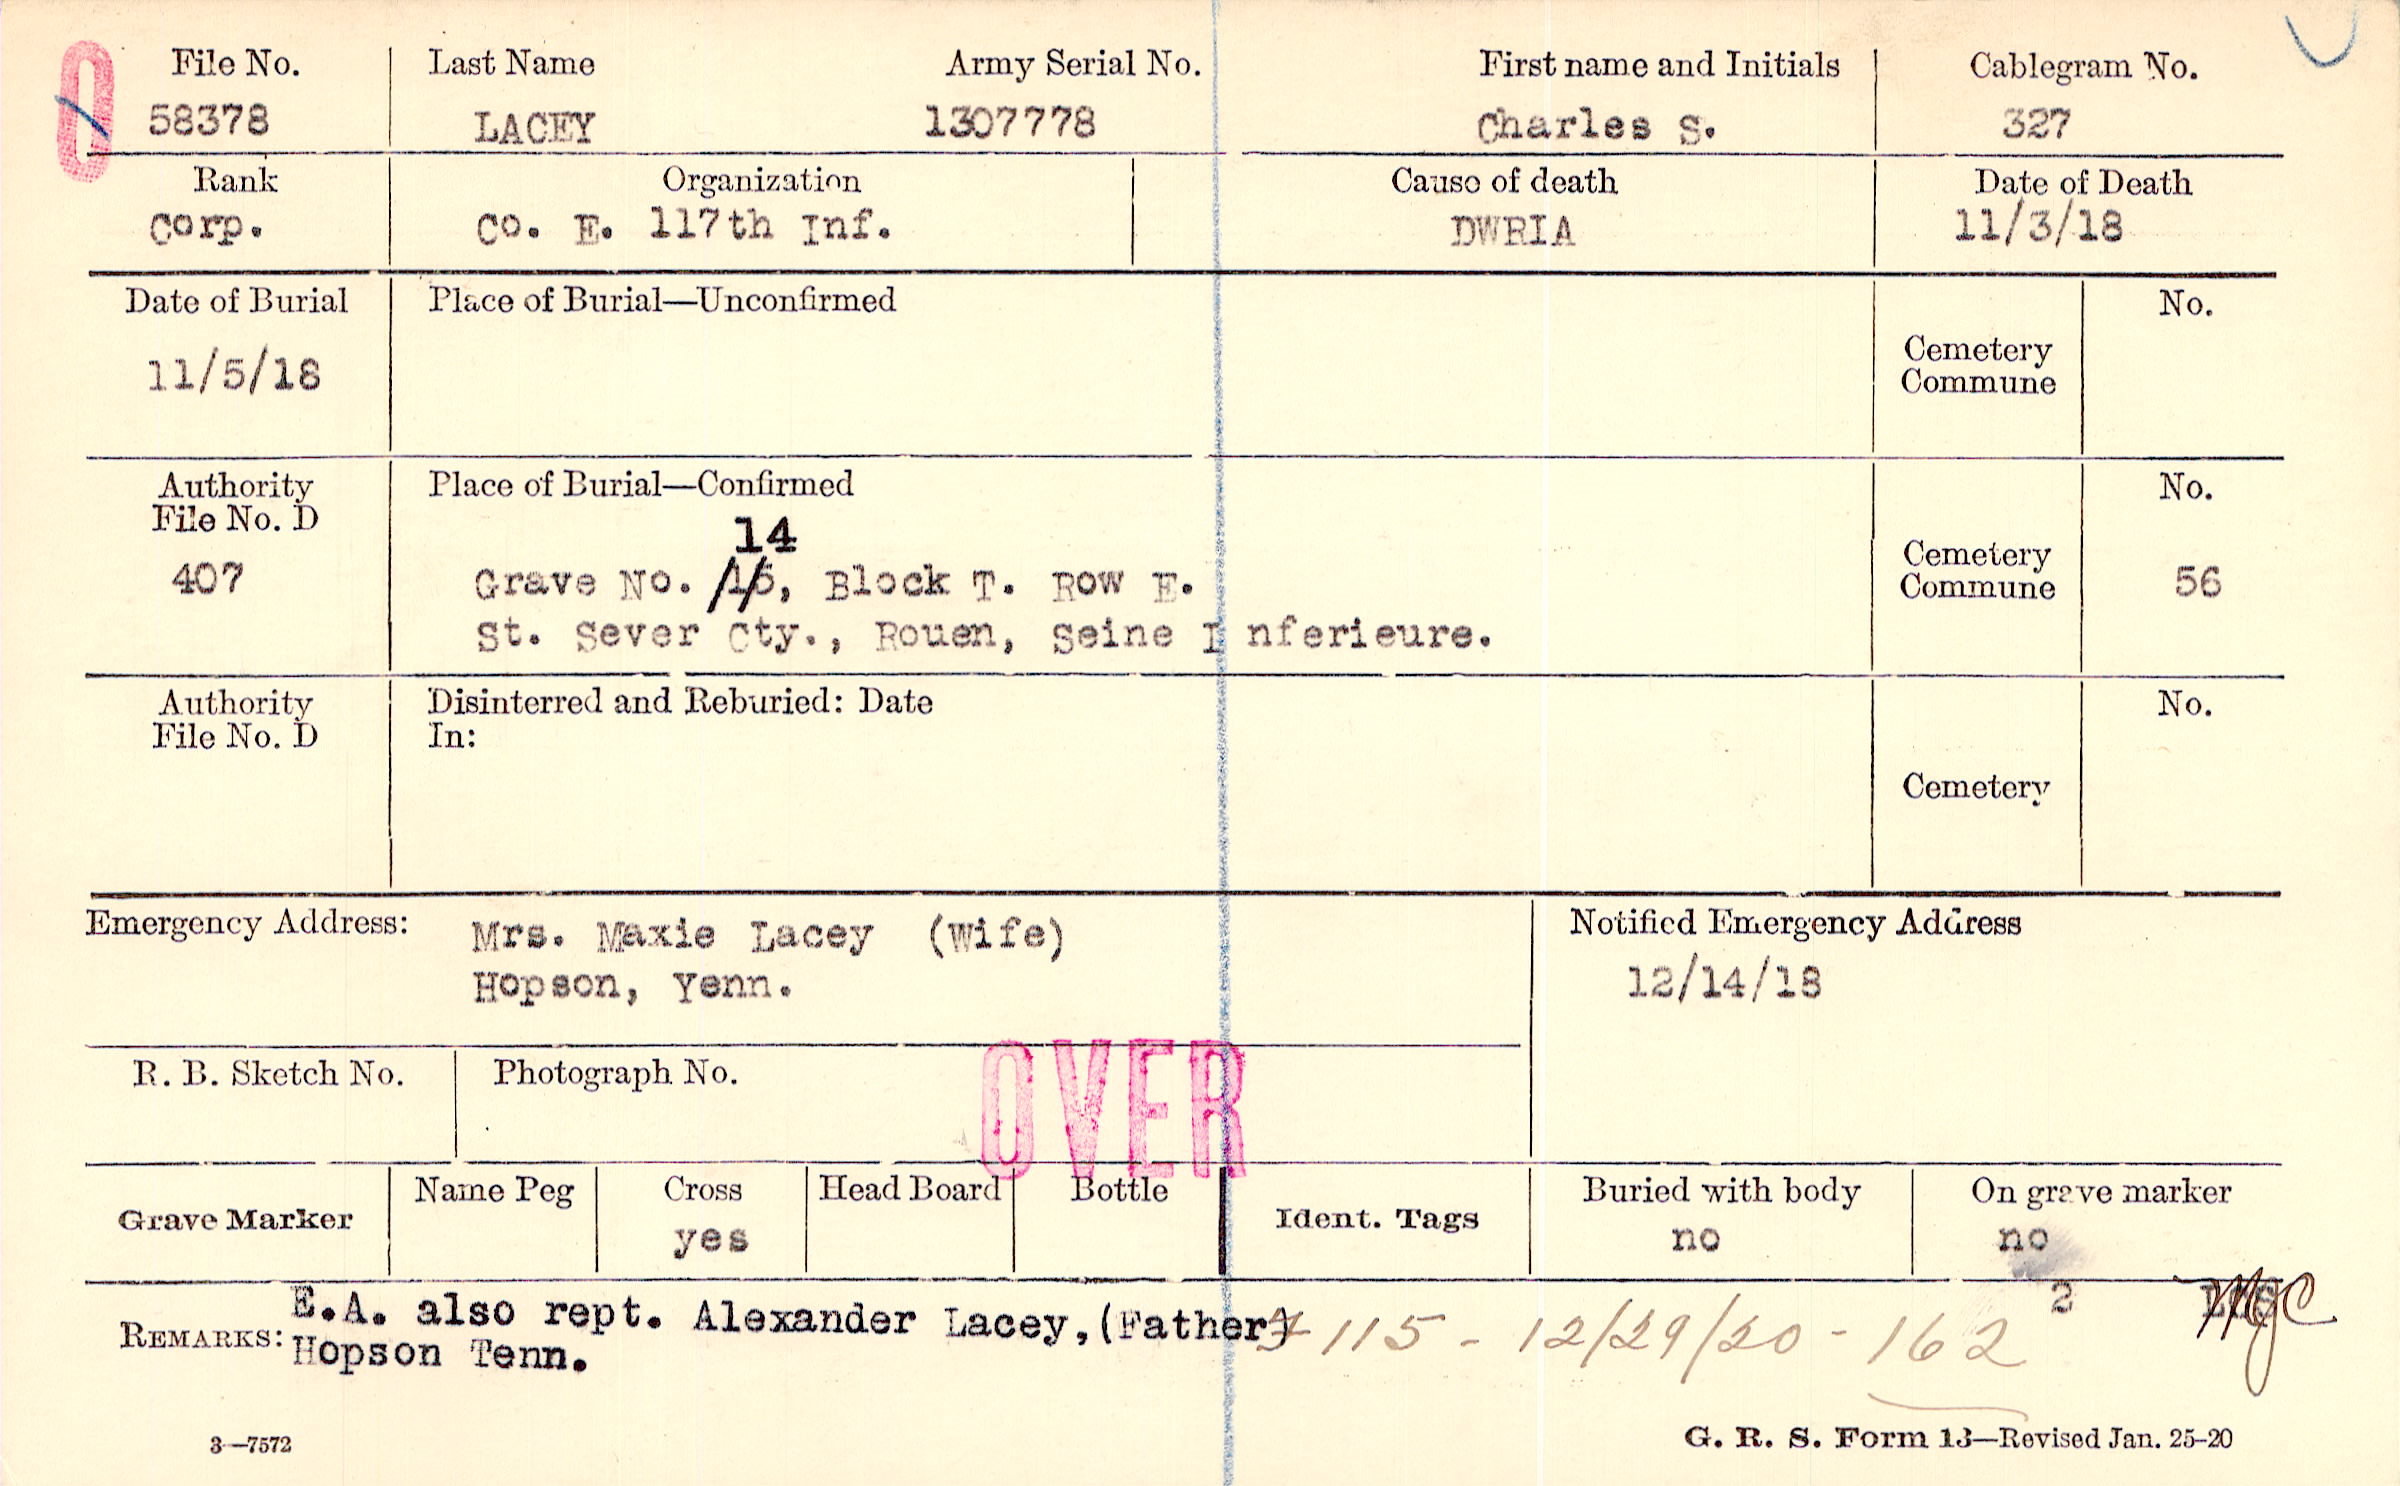 O
File No. Last Name Army Serial No. First name and Initials Cablegram No.
58378 LACEY 1307778 Charles S. 327
Rank Organization Cause of death Date of Death
Corp. Co. E. 117th Inf. DWRIA 11/3/18
Date of Burial Place of Burial—Unconfirmed No.
11/5/18 Cemetery
Commune
Authority Place of Burial—Confirmed No.
File No. D
14
407 Grave No. 15, Block T. Row E. Cemetery
Commune 56
St. Sever Cty., Rouen, Seine Inferieure.
Authority Disinterred and Reburied: Date No.
File No. D In:
Cemetery
Emergency Address: Mrs. Maxie Lacey (Wife) Notified Emergency Address
Hopson, Yenn. 12/14/18
R. B. Sketch No. Photograph No. OVER
Grave Marker Name Peg Cross Head Board Bottle Ident. Tags Buried with body On grave marker
yes no no
2
REMARKS: E.A. also rept. Alexander Lacey,(Father) 115 - 12/29/20 - 162
Hopson Tenn.
3—7572 G. R. S. Form 13—Revised Jan. 25-20